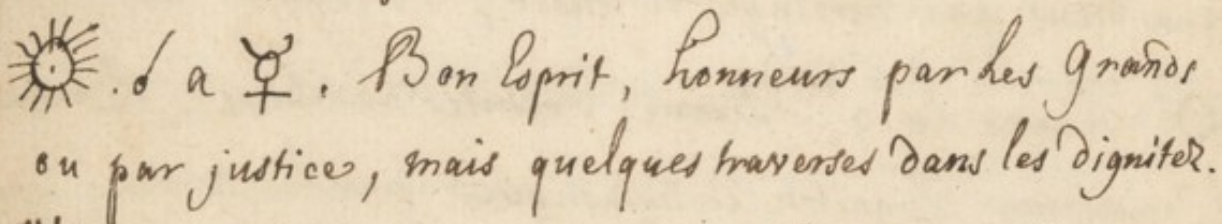 ☉. ☌ a ☿. Bon Esprit, honneurs par les Grands
ou par justice, mais quelques traverses dans les dignitez.